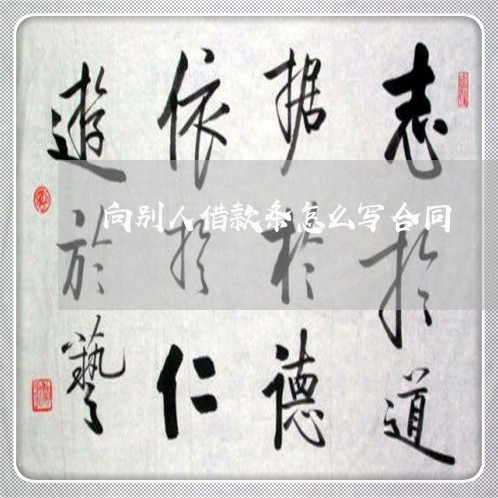 志於道
据於德
依於仁
遊於藝
向别人借款条怎么写合同